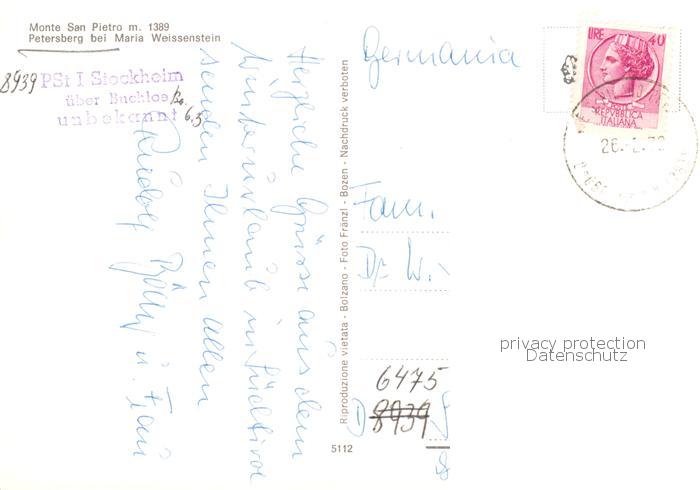 Monte San Pietro m. 1389
Petersberg bei Maria Weissenstein
8939 PSt I Stockheim
über Buchloe
unbekannt 6.3
Herzliche Grüsse aus dem
Winterurlaub in Südtirol
senden Ihnen allen
Rudolf u. Fam
Riproduzione vietata - Bolzano - Foto Fränzl - Bozen - Nachdruck verboten
5112
Germania
LIRE 40
POSTE
REPVBBLICA
ITALIANA
26.
Fam.
Dr. W.
6475
D 8939
privacy protection
Datenschutz